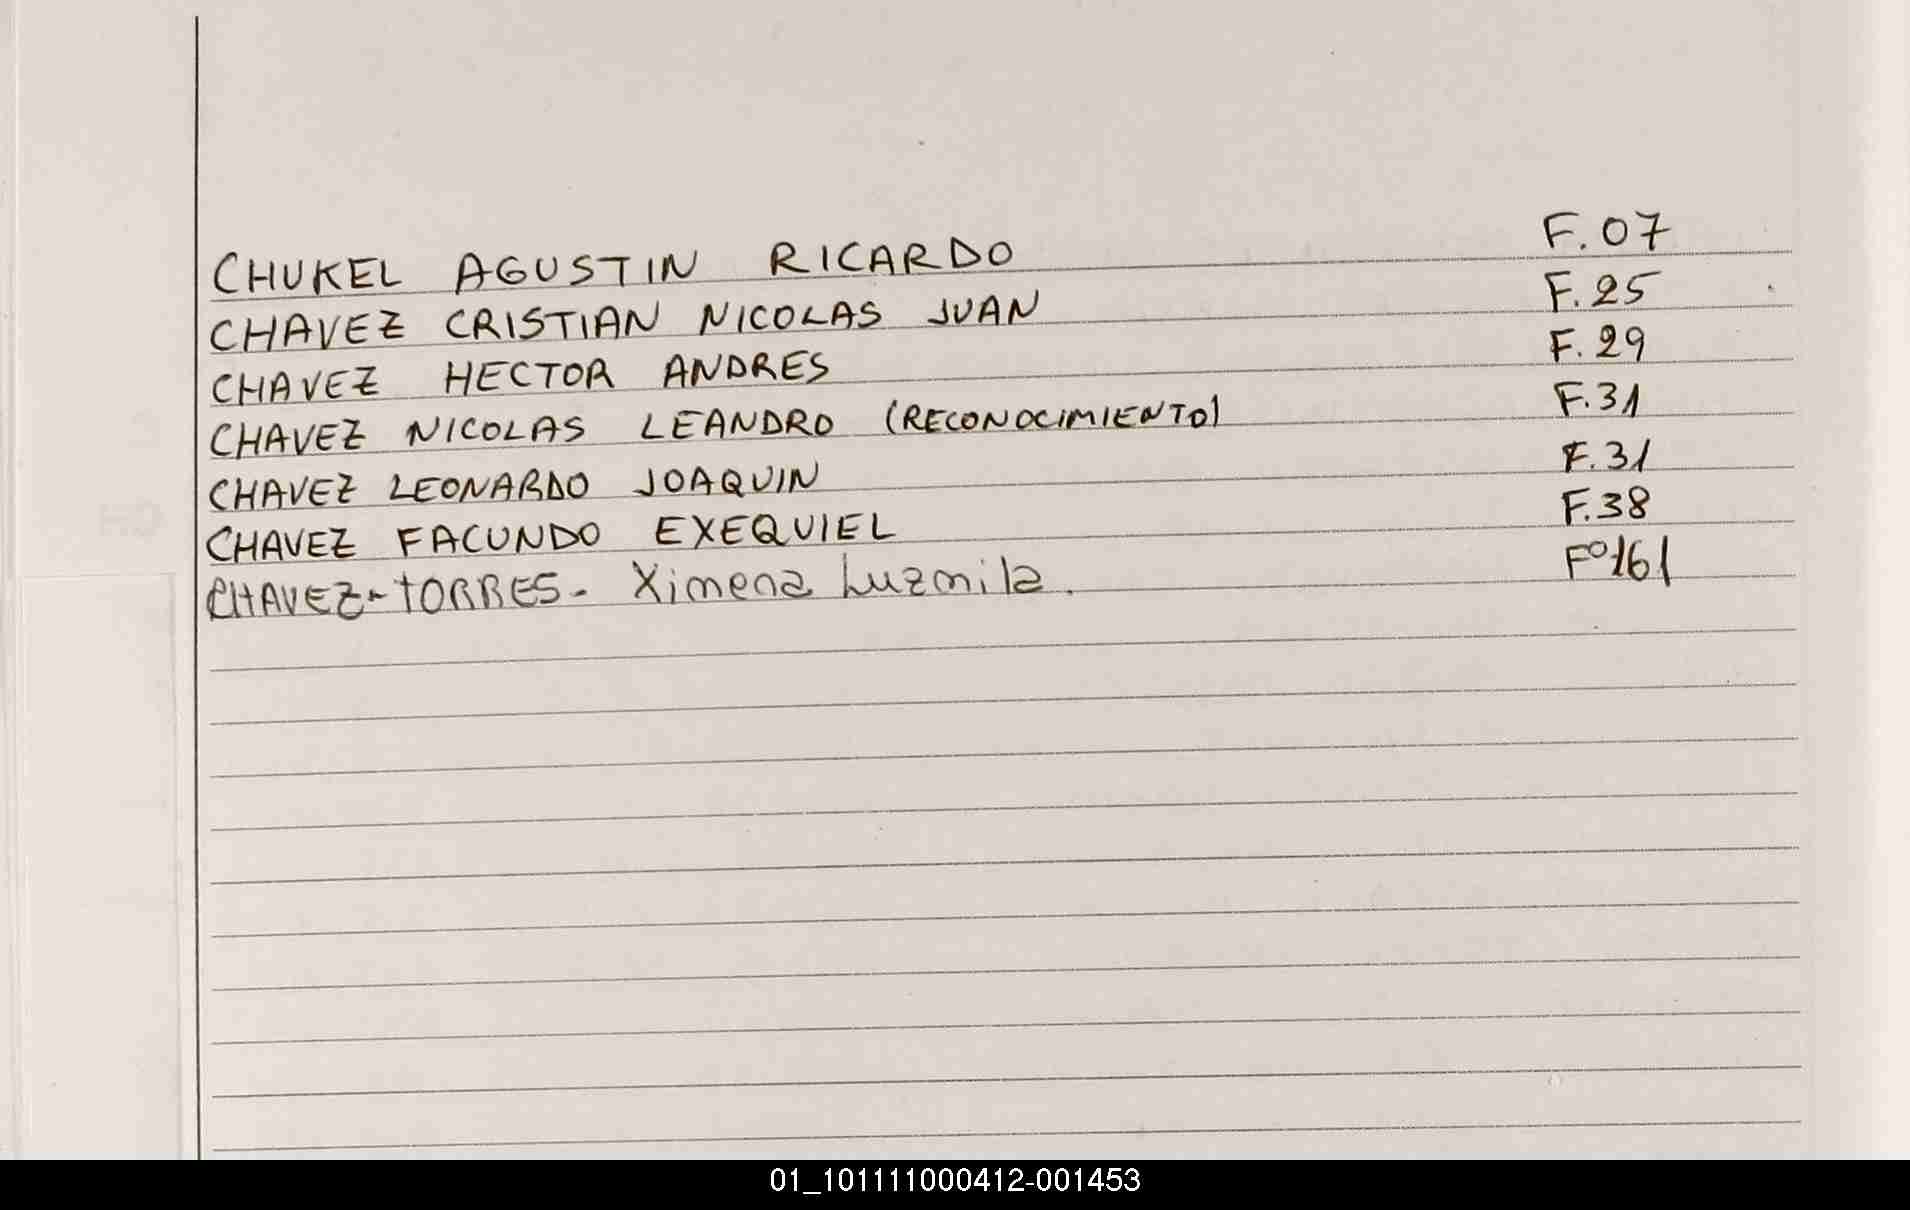 CHUKEL AGUSTIN RICARDO F.07
CHAVEZ CRISTIAN NICOLAS JUAN F.25
CHAVEZ HECTOR ANDRES F.29
CHAVEZ NICOLAS LEANDRO (RECONOCIMIENTO) F.31
CHAVEZ LEONARDO JOAQUIN F.31
CHAVEZ FACUNDO EXEQUIEL F.38
CHAVEZ-TORRES- Ximena Luzmila. Fº161
CH
01_101111000412-001453